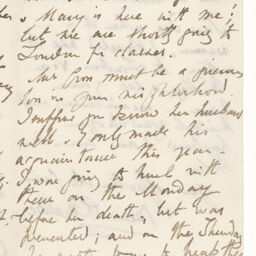 . Mary is here with me;
but we are shortly going to
London for classes.
Mr Gron must be a grievous
loss in your neighbourhood.
I suppose you know her husband
well. I only made his
acquaintance this year.
I was going to lunch with
them on the Monday
before her death, but was
prevented; and on the Sunday